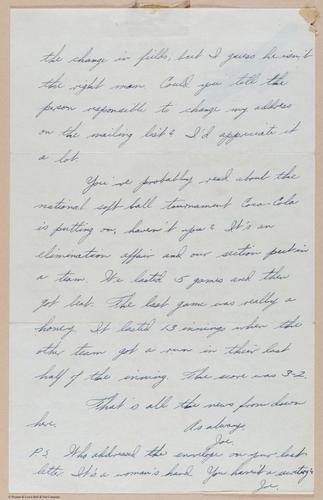 the change in fields, but I guess he isn't
the right man. Could you tell the
person responsible to change my address
on the mailing list? I'd appreciate it
a lot.
You've probably read about the
national soft ball tournament Coca-Cola
is putting on, haven't you? It's an
elimination affair and our section put in
a team. We lasted 5 games and then
got beat. The last game was really a
honey. It lasted 13 innings when the
other team got a run in their last
half of the inning. The score was 3-2.
That is all the news from down
here.
As always
Joe.
P.S. Who addressed the envelope on your last
letter. It's a woman's hand. You haven't a
Joe.